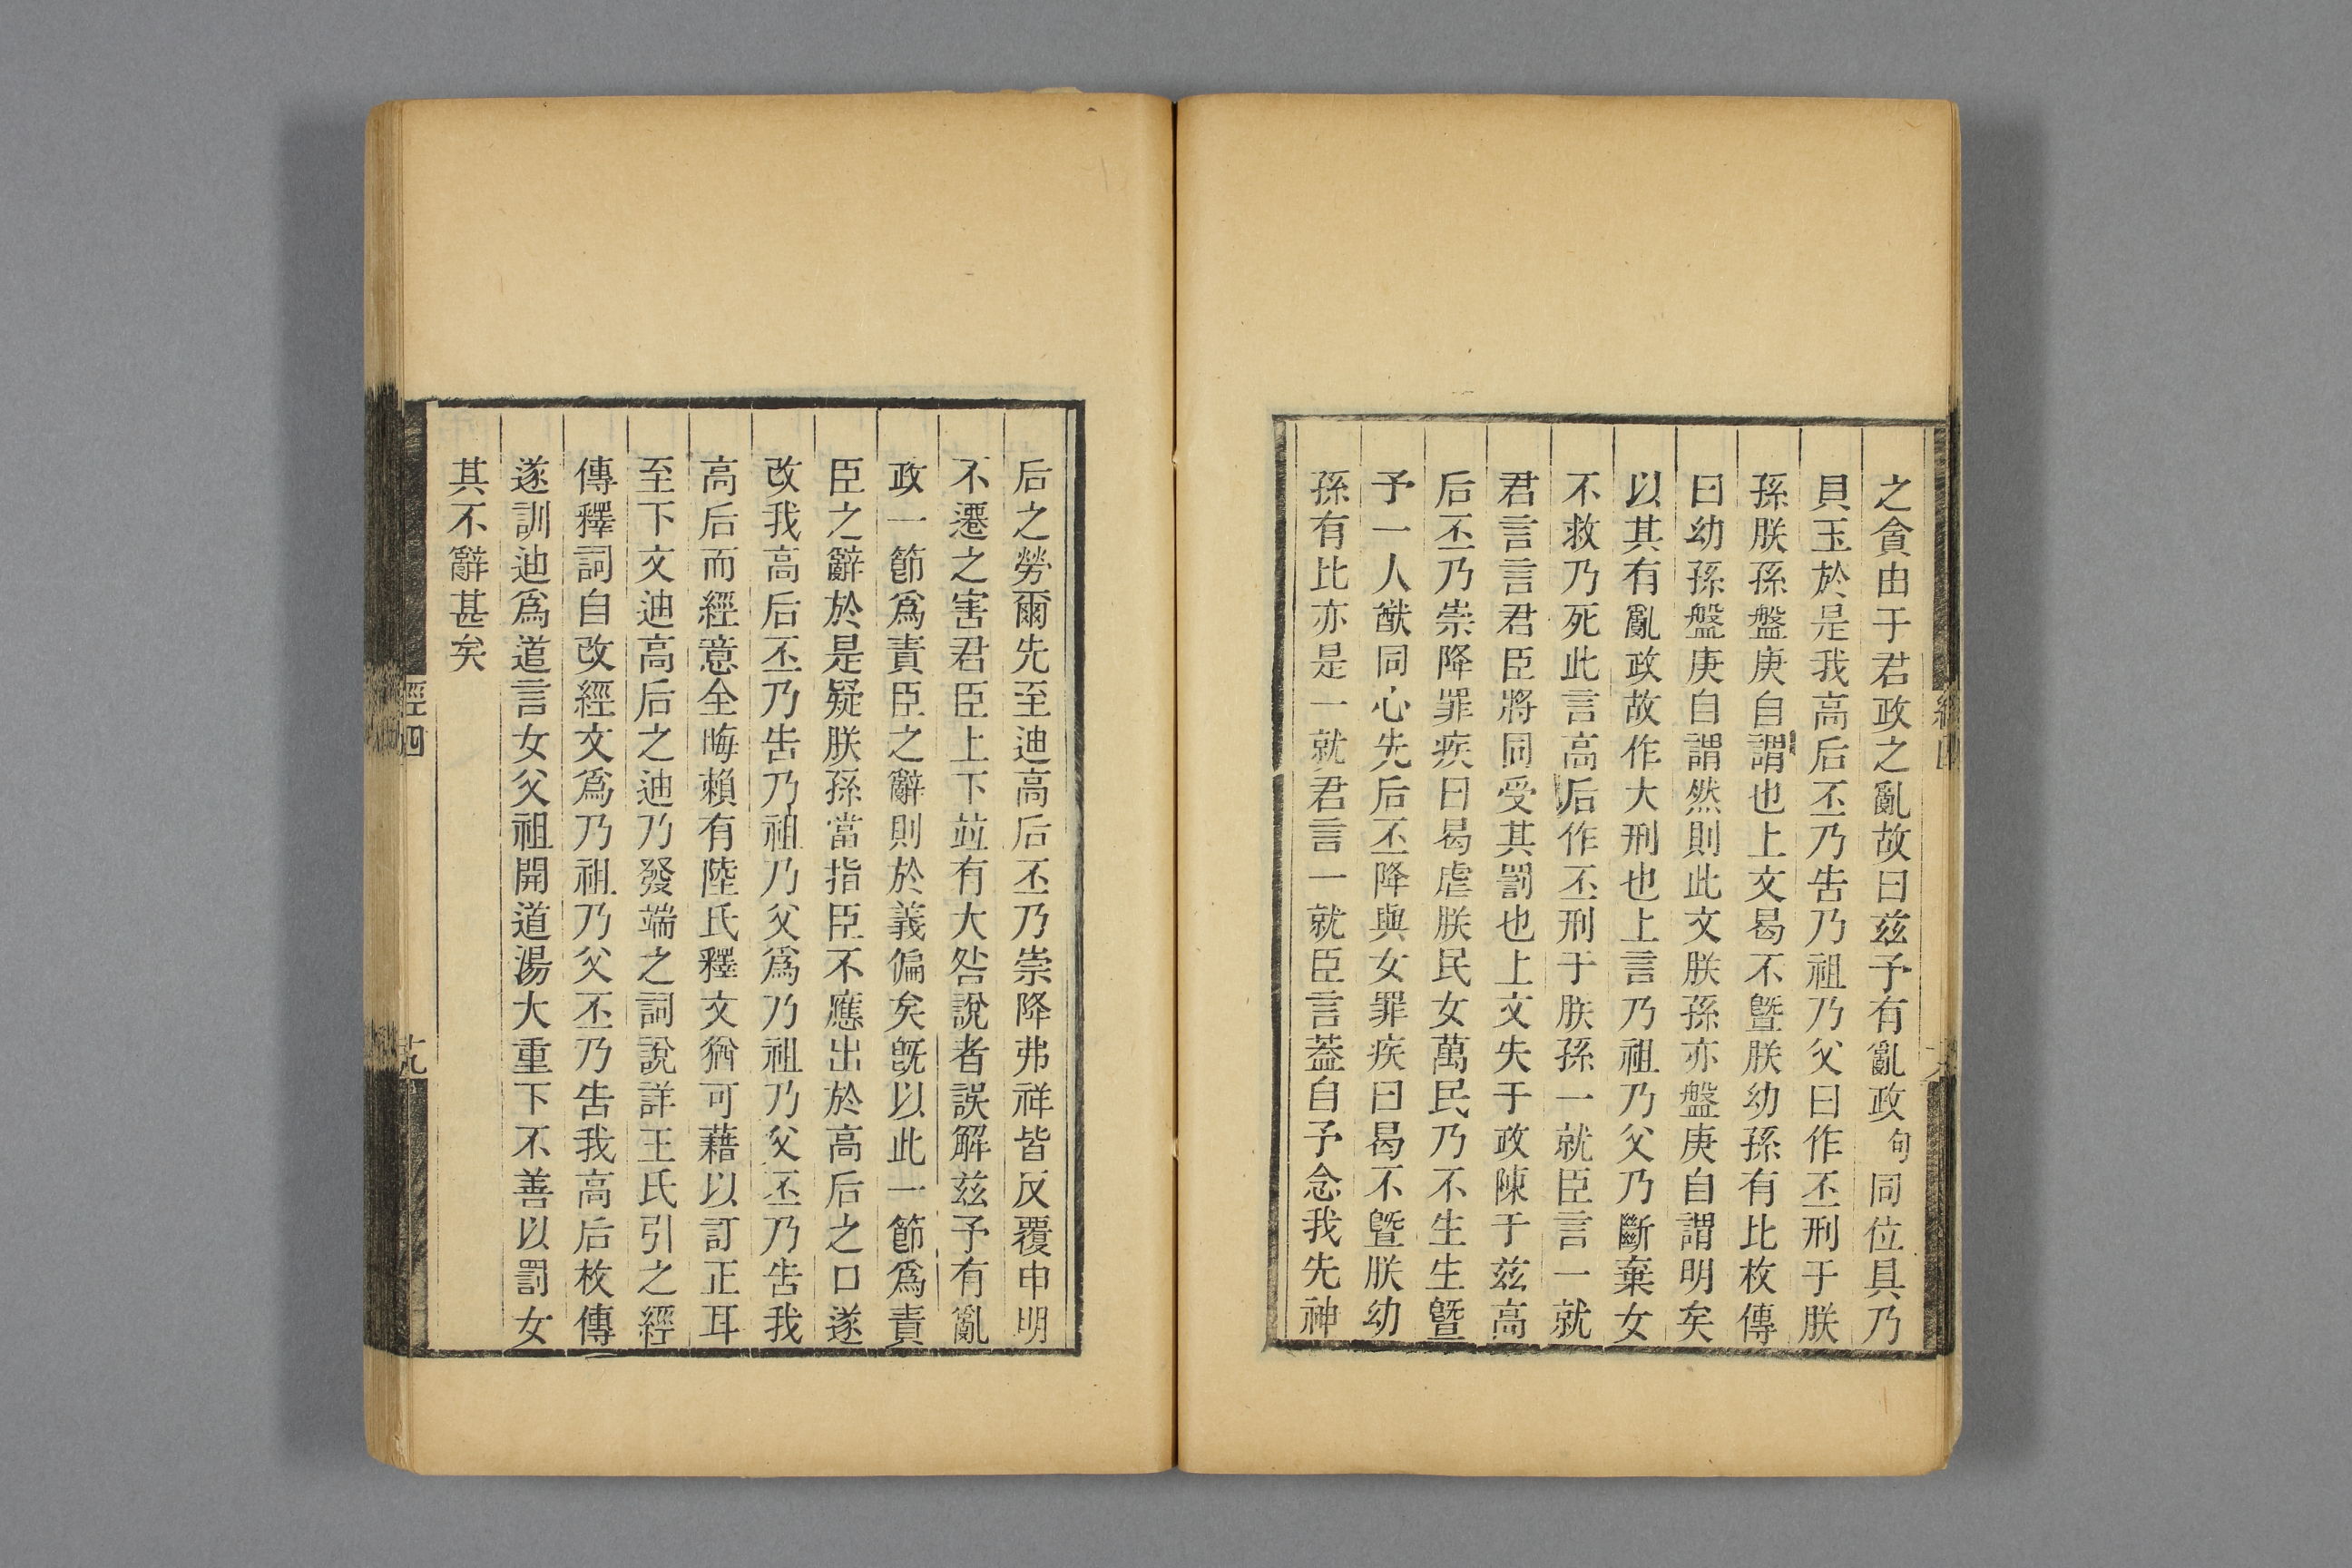 之貪由于君政之亂故曰兹予有亂政句同位具乃
貝玉於是我高后丕乃告乃祖乃父曰作丕刑于朕
孫朕孫盤庚自謂也上文曷不曁朕幼孫有比枚傳
曰幼孫盤庚自謂然則此文朕孫亦盤庚自謂明矣
以其有亂政故作大刑也上言乃祖乃父乃斷棄女
不救乃死此言高后作丕刑于朕孫一就臣言一就
君言言君臣將同受其罰也上文失于政陳于兹高
后丕乃崇降罪疾曰曷虐朕民女萬民乃不生生曁
予一人猷同心先后丕降與女罪疾曰曷不曁朕幼
孫有比亦是一就君言一就臣言葢自予念我先神
后之勞爾先至迪高后丕乃崇降弗祥皆反覆申明
不遷之害君臣上下竝有大咎說者誤解兹予有亂
政一節爲責臣之辭則於義偏矣旣以此一節爲責
臣之辭於是疑朕孫當指臣不應出於高后之口遂
改我高后丕乃告乃祖乃父爲乃祖乃父丕乃告我
高后而經意全晦賴有陸氏釋文猶可藉以訂正耳
至下文迪高后之迪乃發端之詞說詳王氏引之經
傳釋詞自改經文爲乃祖乃父丕乃告我高后枚傳
遂訓迪爲道言女父祖開道湯大重下不善以罰女
其不辭甚矣
經四